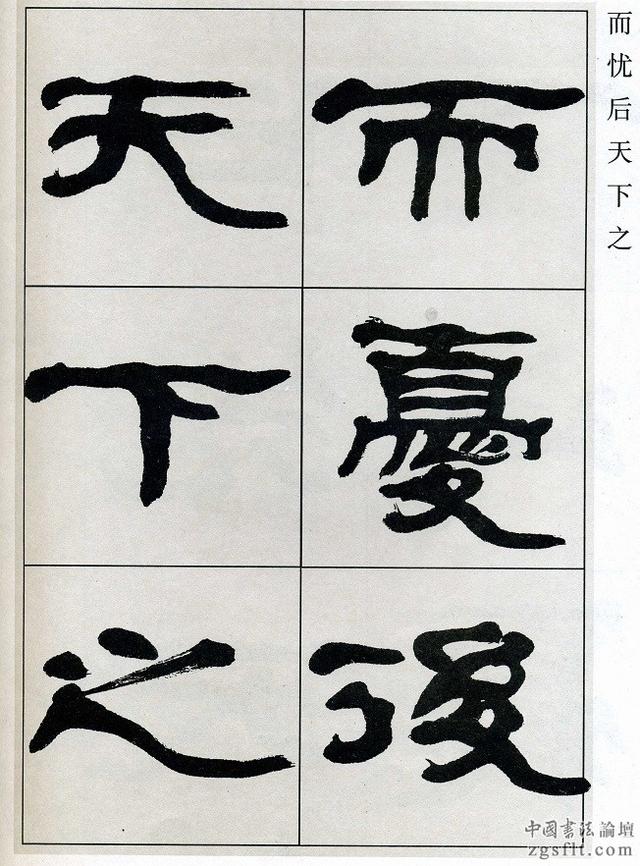 而忧后天下之
而憂後
天下之
中國書法論壇
zgsflt.com